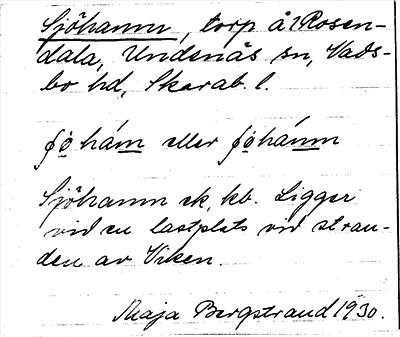 Sjöhamn, torp å Rosen-
dala, Undenäs sn, Vads-
bo hd, Skarab. l.
ʃö̱ hám̱ eller ʃö̱hám̱m
Sjöhamn ek. kb. Ligger
vid en lastplats vid stran-
den av Viken.
Maja Bergstrand 1930.